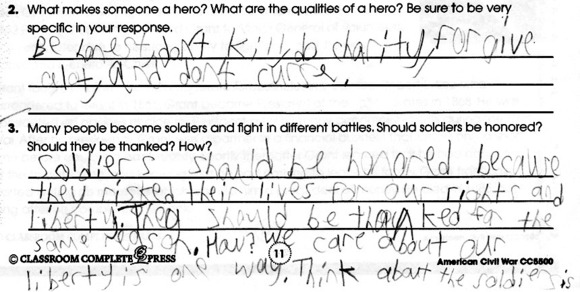 2. What makes someone a hero? What are the qualities of a hero? Be sure to be very
specific in your response.
Be honest, don't kill, do charity, forgive
alot, and don't curse.
3. Many people become soldiers and fight in different battles. Should soldiers be honored?
Should they be thanked? How?
Soldiers should be honored because
they risked their lives for our rights and
liberty. They should be thanked for the
same reason. How? We care about our
© CLASSROOM COMPLETE PRESS 11 American Civil War CC5500
liberty is one way. Think about the soldiers is